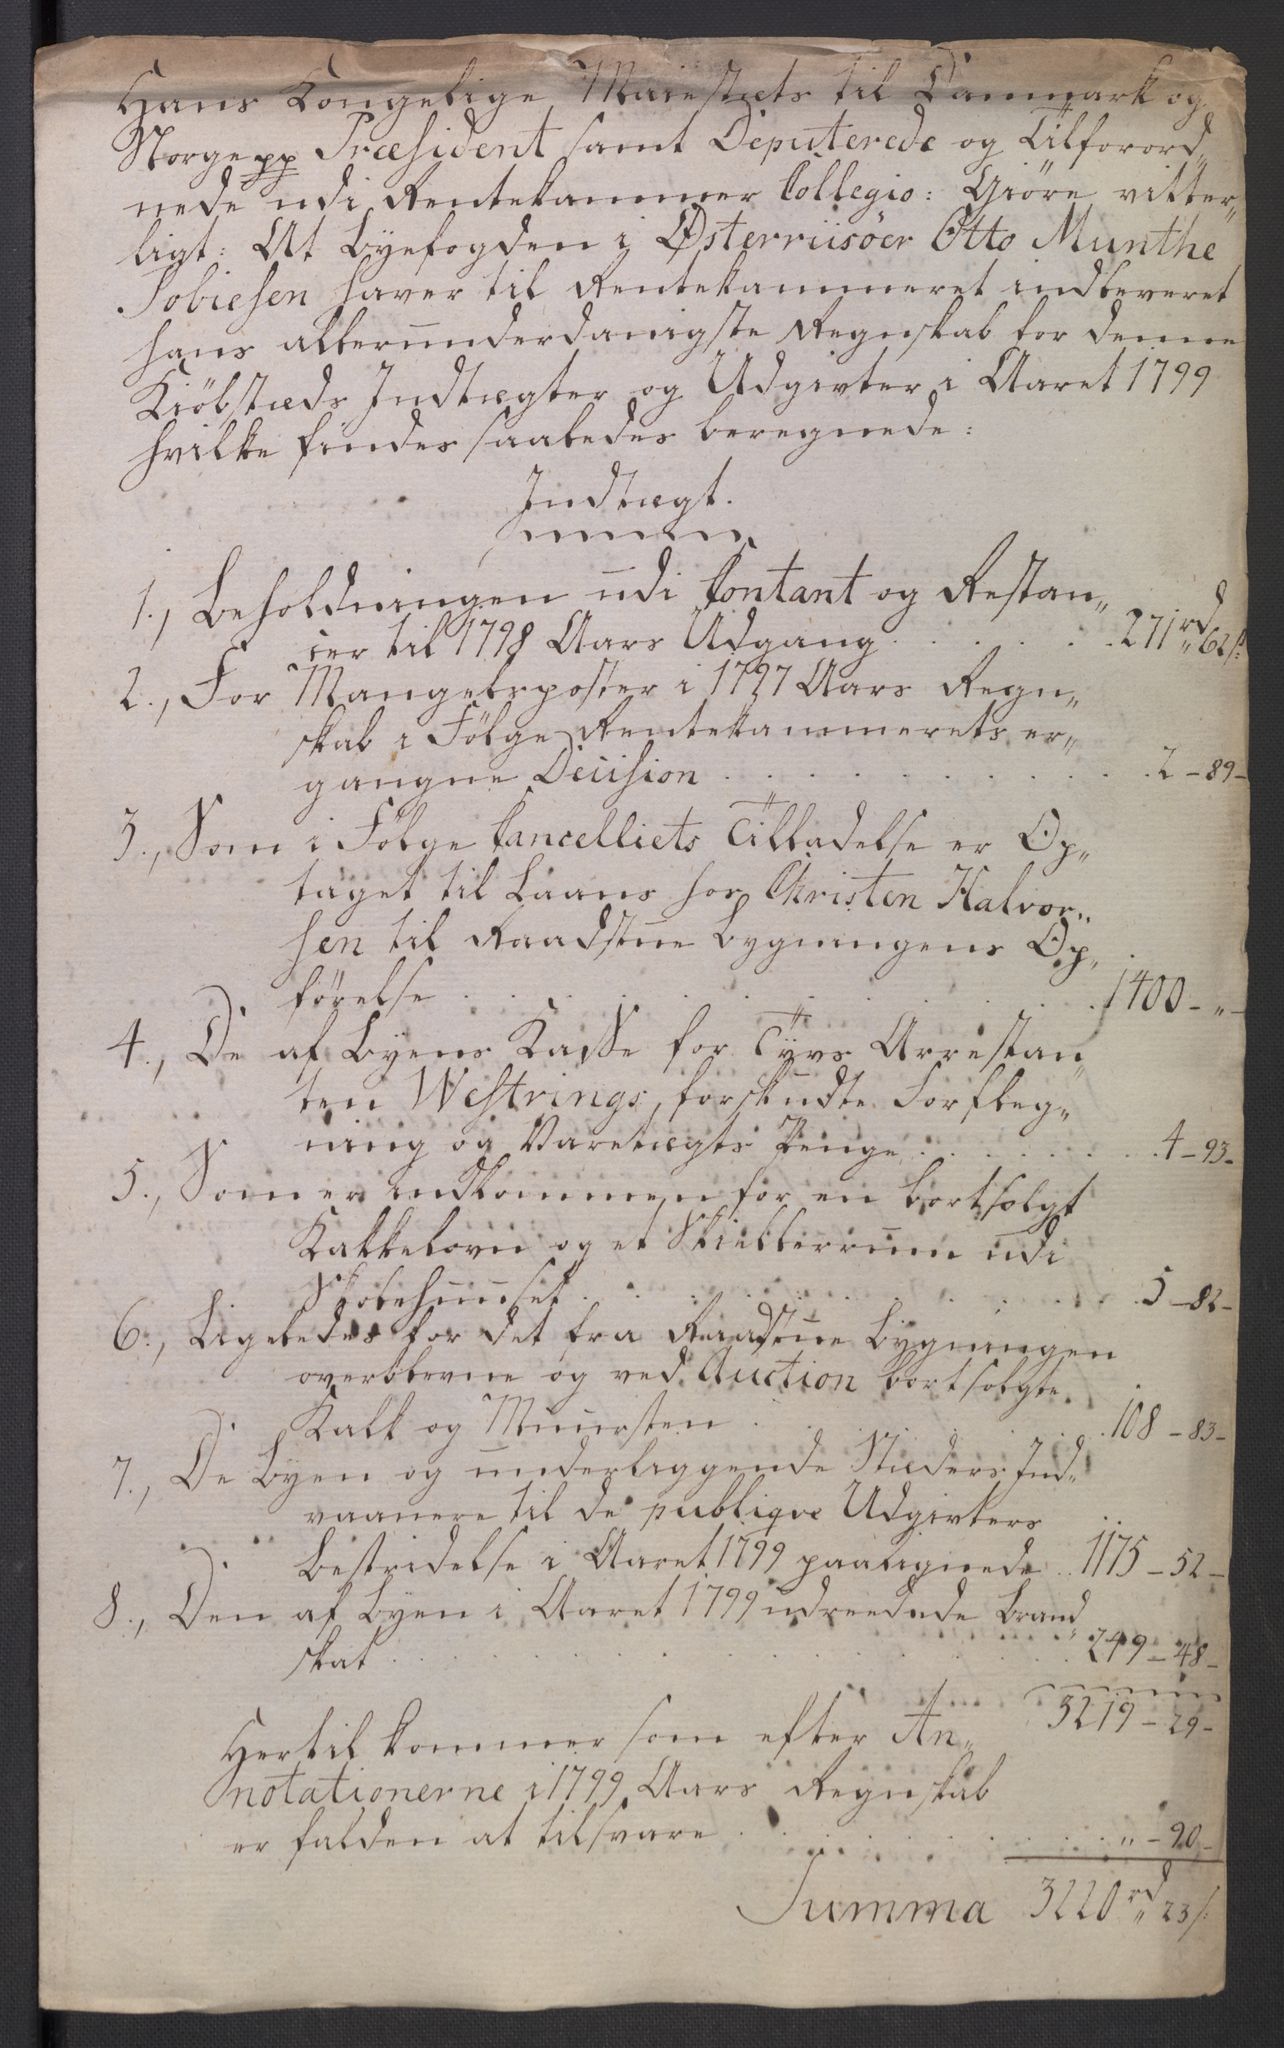 Hans Kongelige Maiestæts til Danmark og
Norge pp Præsident samt Deputerede og Tilforord„
nede udi Rentekammer Collegio: Giöre vitter„
ligt: At Byefogden i Østerriisöer Otto Munthe
Tobiesen haver til Rentekammeret indleveret
hans allerunderdanigste Regnskab for denne
Kiöbstæds Indtægter og Udgivter i Aaret 1799
hvilke findes saaledes beregnede:
Indtægt.
1., Beholdningen udi Contant og Restan„
cer til 1798 Aars Udgang . . . . . 271 rd „ 62 s:
2., For Mangelsposter i 1797 Aars Regn„
skab i Fölge Rentekammerets er„
gangne Decision . . . . . 2 – 89 –
3., Som i Fölge Cancelliets Tilladelse er Op„
taget til Laans hos Christen Halvor„
sen til Raadstue bygningens Op„
förelse . . . . . 1400 – „ –
4., De af Byens Kasse for Tyvs Arrestan„
ten Westrings, forskudte Forfleg„
ning og Varetægts Penge . . . . . 4 – 93 –
5., Som er indkommen for en bortsolgt
Kakkelovn og et Skillerum udi
. . . . . 5 – 82 –
6., Ligeledes for det fra Raadstue bygningen
overblevne og ved Auction bortsolgte
Kalk og Muursten . . . . . 108 – 83 –
7., De Byen og underliggende Stæders Ind„
vaanere til de publiqve Udgivters
bestridelse i Aaret 1799 paalignede . . 1175 – 52 –
8., Den af Byen i Aaret 1799 udreedede Brand„
skat . . . . . 249 – 48 –
3219 – 29 –
Hertil kommer som efter An„
notationerne i 1799 Aars Regnskab
er falden at tilsvare . . . . . „ – 90 –
Summa 3220 rd „ 23 s: